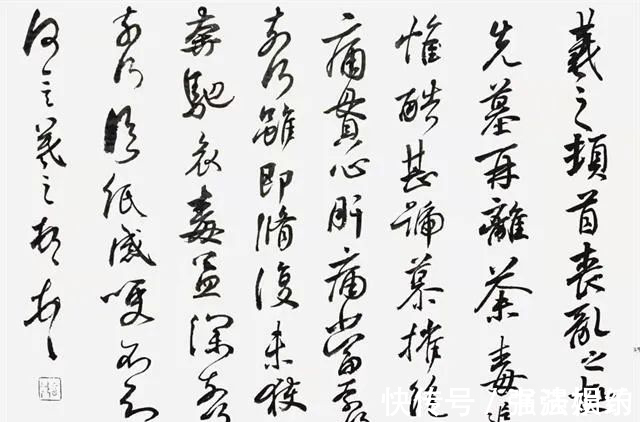 羲之頓首喪亂之極
先墓再離荼毒追
惟酷甚號慕摧絕
痛貫心肝痛當奈何
奈何雖即脩復未獲
奔馳哀毒益深奈何
奈何臨紙感哽不知
何言羲之頓首頓首
快传号 /